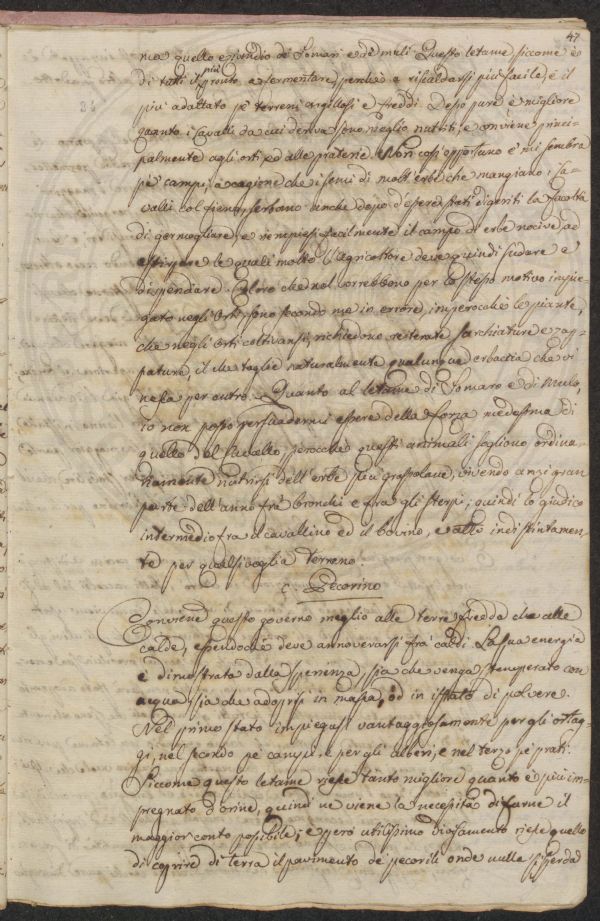 47
ma quello eziandio de' Somari e de' muli. Questo letame, siccome è
di tutti il più pronto a fermentare, perchè a riscaldarsi più facile, è il
più adattato pe' terreni argillosi e freddi. Desso pure è migliore
quanto i Cavalli da cui deriva sono meglio nutriti, e conviene princi-
palmente agli orti ed alle praterie. Non così opportuno e' mi sembra
pe' campi, a cagione che i semi di molt' erbe che mangiano i Ca-
valli col fieno, serbano anche dopo d'essere stati digeriti la facoltà
di germogliare, e riempiesi facilmente il campo di erbe nocive, ad
estirpare le quali molto l'Agricoltore deve quindi sudare e
dispendiare. Coloro che nol vorrebbono per lo stesso motivo impie-
gato negli Orti, sono secondo me in errore, imperocchè le piante,
che negli orti coltivansi, richiedono reiterate sarchiature e zap-
pature, il che toglie naturalmente qualunque erbaccia che vi
nasca per entro. Quanto al letame di Somaro e di Mulo,
io non posso persuadermi essere della forza medesima di
quello del Cavallo, perocchè questi animali sogliono ordina-
riamente nutrirsi dell' erbe più grossolane, vivendo anzi gran
parte dell' anno fra' bronchi e fra gli sterpi; quindi lo giudico
intermedio fra il cavallino ed il bovino, e atto indistintamen-
te per qualsivoglia terreno.
C. Pecorino
Conviene questo governo meglio alle terre fredde che alle
calde, essendochè deve annoverarsi fra' caldi. La sua energia
è dimostrata dalla sperienza, sia che venga stemperato con
acqua, sia che adoprisi in massa, od in istato di polvere.
Nel primo stato impiegasi vantaggiosamente per gli ortag-
gi, nel secondo pe' campi e per gli alberi, e nel terzo pe' prati.
Siccome questo letame riesce tanto migliore quanto è più im-
pregnato d'orine, quindi ne viene la necessità di farne il
maggior conto possibile; e però utilissimo divisamento riesce quello
di coprire di terra il pavimento de' pecorili onde nulla si disperda